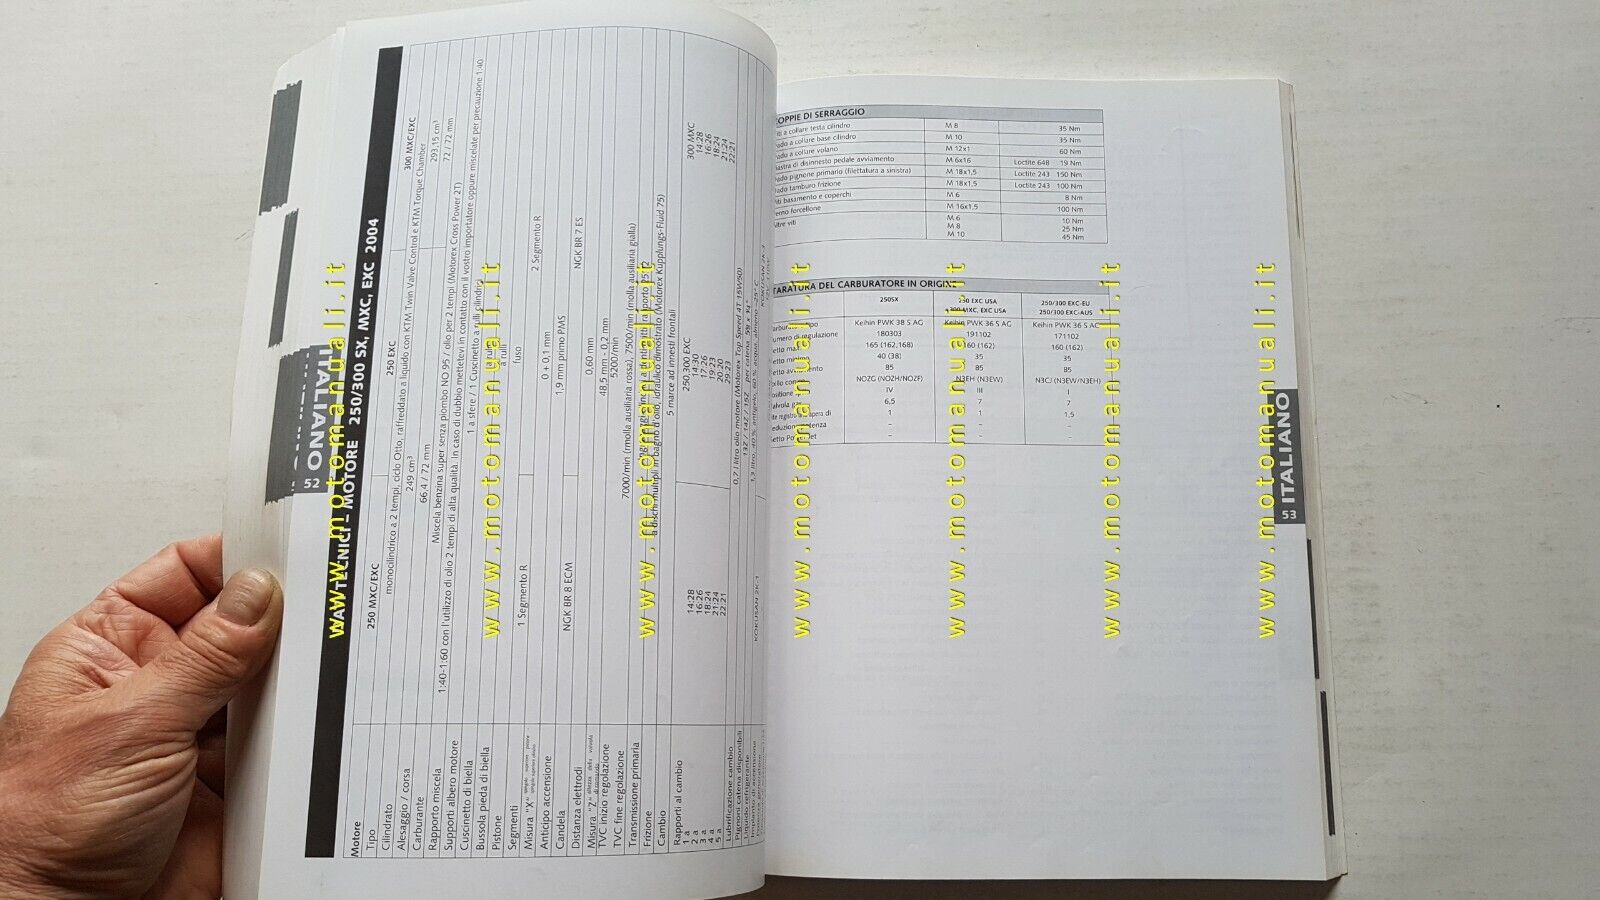 ITALIANO
52
DATI TECNICI – MOTORE 250/300 SX, MXC, EXC 2004
Motore 250 MXC/EXC 250 EXC 300 MXC/EXC
Tipo monocilindrico a 2 tempi, ciclo Otto, raffreddato a liquido con KTM Twin Valve Control e KTM Torque Chamber
Cilindrato 249 cm³ 293,15 cm³
Alesaggio / corsa 66,4 / 72 mm 72 / 72 mm
Carburante Miscela benzina super senza piombo NO 95 / olio per 2 tempi (Motorex Cross Power 2T)
Rapporto miscela 1:40-1:60 con l'utilizzo di olio 2 tempi di alta qualità. In caso di dubbio mettetevi in contatto con il vostro importatore oppure miscelate per precauzione 1:40
Supporti albero motore 1 a sfere / 1 Cuscinetto a rulli cilindrici
Cuscinetto di biella a rulli
Bussola pieda di biella a rulli
Pistone fuso
Segmenti 1 Segmento R 2 Segmento R
Misura "X"
Anticipo accensione 1,9 mm primo PMS
Candela NGK BR 8 ECM NGK BR 7 ES
Distanza elettrodi 0,60 mm
Misura "Z" 48,5 mm
TVC inizio regolazione 5200/min
TVC fine regolazione 7000/min (mmolla ausiliaria rossa), 7500/min (molla ausiliaria gialla)
Trasmissione primaria
Frizione a dischi multipli in bagno d'olio, idraulico dimostrato (Motorex Kupplungs-Fluid 75)
Cambio 5 marce ad innesti frontali
Rapporti al cambio 250,300 EXC 300 MXC
1 a 14:28 14:30 14:28
2 a 16:26 17:26 16:26
3 a 18:24 19:23 18:24
4 a 21:24 20:20 21:24
5 a 22:21 29:23 22:21
Lubrificazione cambio 0,7 l litro olio motore (Motorex Top Speed 4T 15W50)
Pignoni catena disponibili 13Z / 14Z / 15Z
Liquido refrigerante 1,3 litro, 40% antigelo, 60% acqua, almeno –25° C
Impianto di accensione KOKUSAN 2K-1
COPPIE DI SERRAGGIO
a collare testa cilindro M 8 35 Nm
a collare base cilindro M 10 35 Nm
a collare volano M 12x1 60 Nm
di disinnesto pedale avviamento M 6x16 Loctite 648 19 Nm
pignone primario (filettatura a sinistra) M 18x1,5 Loctite 243 150 Nm
tamburo frizione M 18x1,5 Loctite 243 100 Nm
basamento e coperchi M 6 8 Nm
forcellone M 16x1,5 100 Nm
viti M 6 10 Nm
M 8 25 Nm
M 10 45 Nm
TARATURA DEL CARBURATORE IN ORIGINE
250SX 250 EXC USA 250/300 EXC-EU
300 MXC, EXC USA 250/300 EXC-AUS
Keihin PWK 38 S AG Keihin PWK 36 S AG Keihin PWK 36 S AG
di regolazione 180303 191102 171102
165 (162,168) 160 (162) 160 (162)
40 (38) 35 35
85 85 85
NOZG (NOZH/NOZF) N3EH (N3EW) N3CJ (N3EW/N3EH)
IV III I
6,5 7 7
1 1 1,5
– – –
– – –
ITALIANO
53
www.motomanuali.it
www.motomanuali.it
www.motomanuali.it
www.motomanuali.it
www.motomanuali.it
www.motomanuali.it
www.motomanuali.it